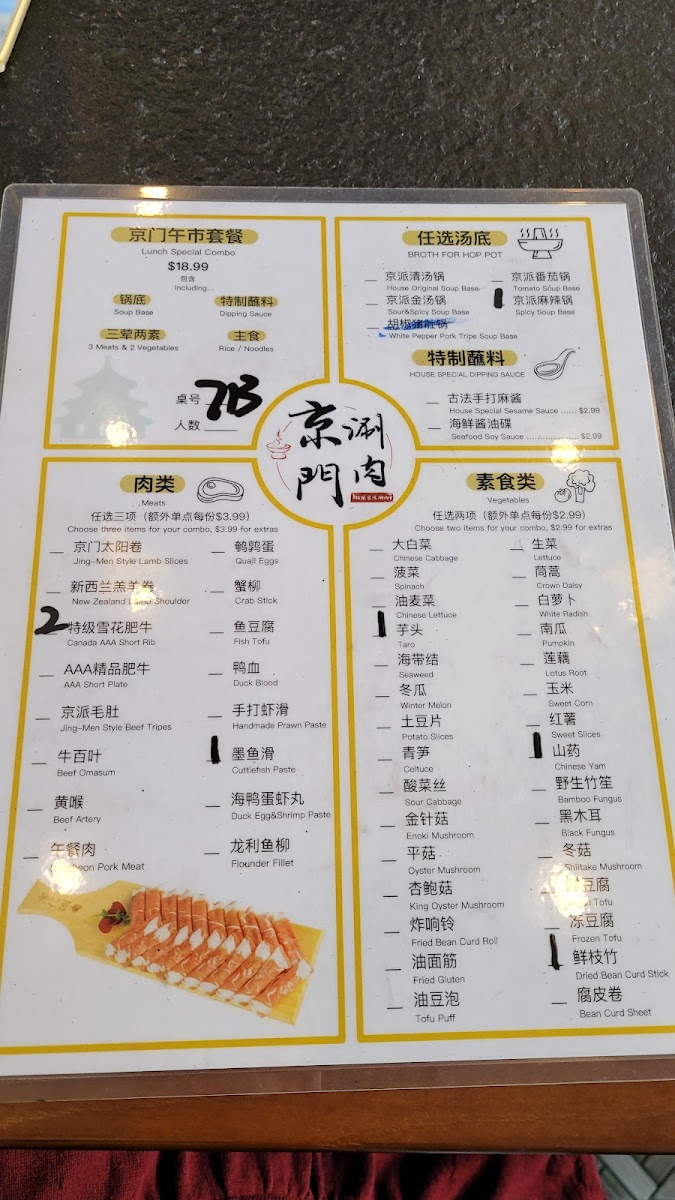 京门午市套餐
Lunch Special Combo
$18.99
包含
Including...
锅底 特制蘸料
Soup Base Dipping Sauce
三荤两素 主食
3 Meats & 2 Vegetables Rice / Noodles
桌号 7B
人数
任选汤底
BROTH FOR HOP POT
京派清汤锅 京派番茄锅
House Original Soup Base Tomato Soup Base
京派金汤锅 京派麻辣锅
Sour&Spicy Soup Base Spicy Soup Base
胡椒猪肚锅
White Pepper Pork Tripe Soup Base
特制蘸料
HOUSE SPECIAL DIPPING SAUCE
古法手打麻酱
House Special Sesame Sauce ...... $2.99
海鲜酱油碟
Seafood Soy Sauce ................ $2.99
京門
涮肉
肉类
Meats
任选三项（额外单点每份$3.99）
Choose three items for your combo, $3.99 for extras
京门太阳卷 鹌鹑蛋
Jing-Men Style Lamb Slices Quail Eggs
新西兰羔羊卷 蟹柳
New Zealand Lamb Shoulder Crab Stick
2 特级雪花肥牛 鱼豆腐
Canada AAA Short Rib Fish Tofu
AAA精品肥牛 鸭血
AAA Short Plate Duck Blood
京派毛肚 手打虾滑
Jing-Men Style Beef Tripes Handmade Prawn Paste
牛百叶 墨鱼滑
Beef Omasum Cuttlefish Paste
黄喉 海鸭蛋虾丸
Beef Artery Duck Egg&Shrimp Paste
午餐肉 龙利鱼柳
Luncheon Pork Meat Flounder Fillet
素食类
Vegetables
任选两项（额外单点每份$2.99）
Choose two items for your combo, $2.99 for extras
大白菜 生菜
Chinese Cabbage Lettuce
菠菜 茼蒿
Spinach Crown Daisy
油麦菜 白萝卜
Chinese Lettuce White Radish
芋头 南瓜
Taro Pumpkin
海带结 莲藕
Seaweed Lotus Root
冬瓜 玉米
Winter Melon Sweet Corn
土豆片 红薯
Potato Slices Sweet Slices
青笋 山药
Celtuce Chinese Yam
酸菜丝 野生竹笙
Sour Cabbage Bamboo Fungus
金针菇 黑木耳
Enoki Mushroom Black Fungus
平菇 冬菇
Oyster Mushroom Shiitake Mushroom
杏鲍菇 豆腐
King Oyster Mushroom Tofu
炸响铃 冻豆腐
Fried Bean Curd Roll Frozen Tofu
油面筋 鲜枝竹
Fried Gluten Dried Bean Curd Stick
油豆泡 腐皮卷
Tofu Puff Bean Curd Sheet